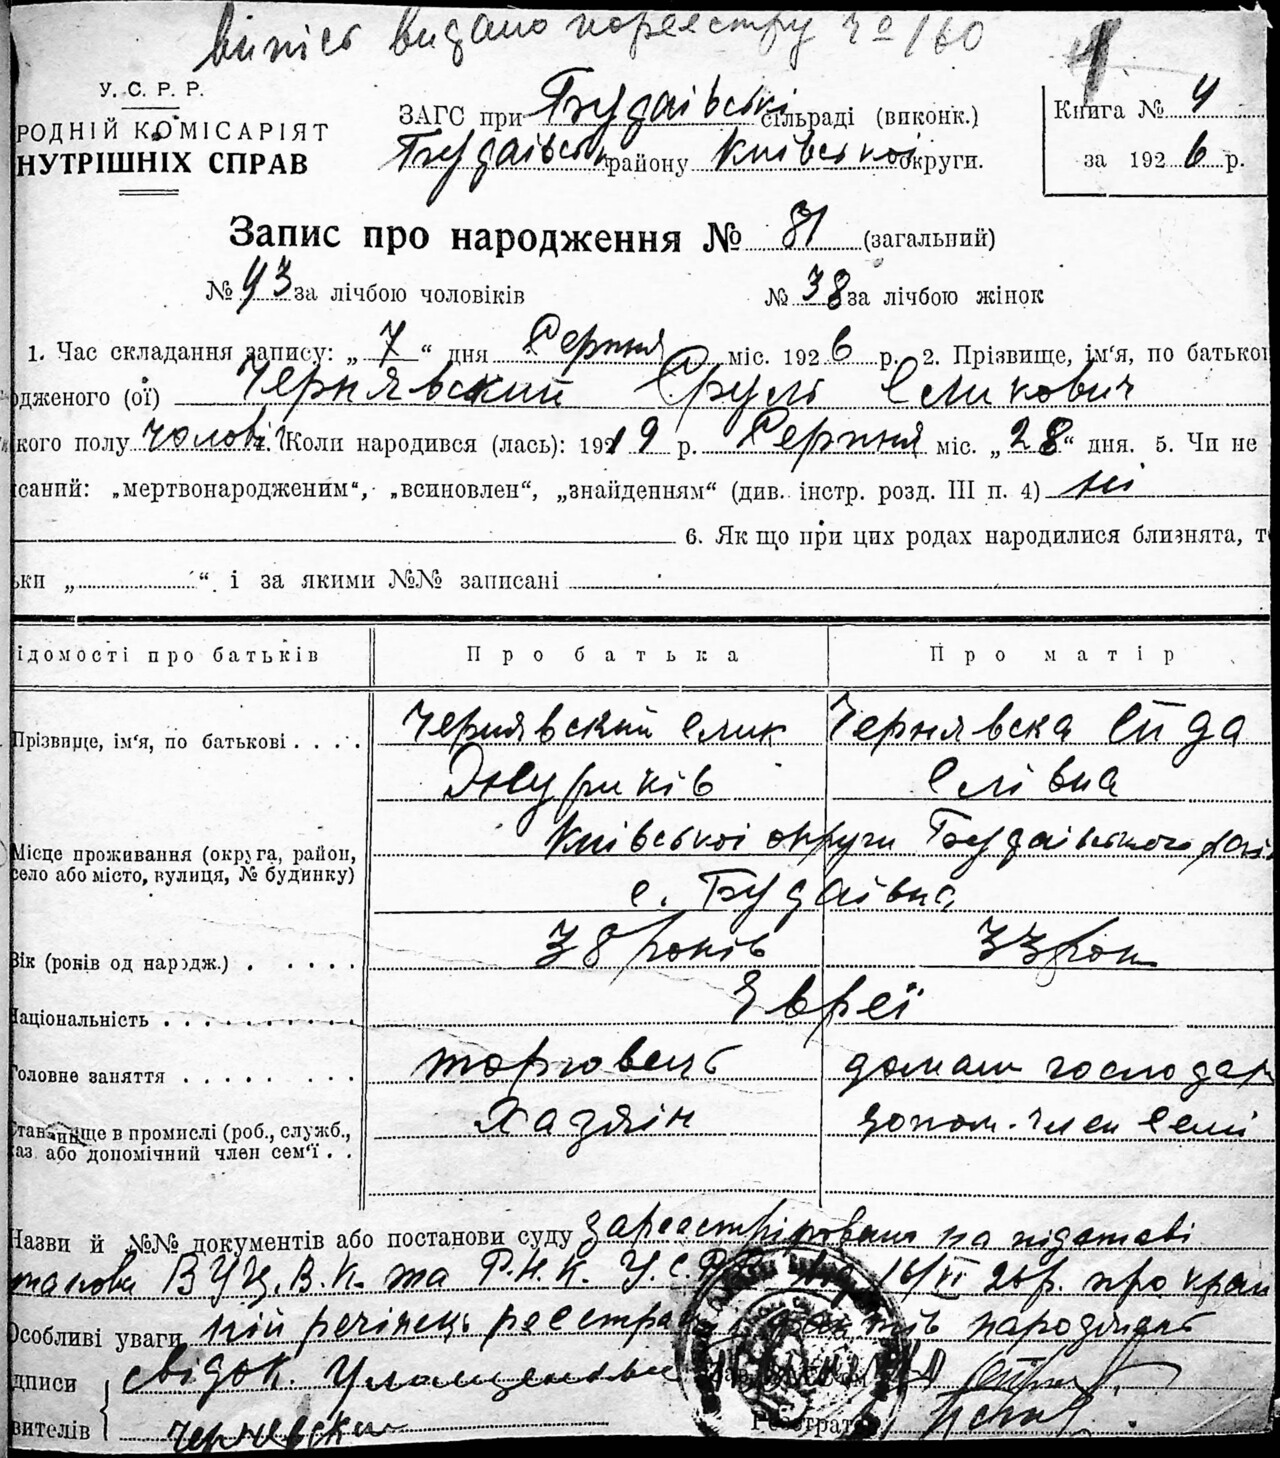 випись видано по реестру № 160
У. С. Р. Р.
РОДНІЙ КОМІСАРІЯТ
НУТРІШНІХ СПРАВ
ЗАГС при Будаівські сільраді (виконк.)
Будаівськ району Київськоі округи.
Книга № 4
за 1926 р.
Запис про народження № 81 (загальний)
№ 43 за лічбою чоловіків № 38 за лічбою жінок
1. Час складання запису: „ 7 “ дня Серпня міс. 1926 р. 2. Прізвище, ім‘я, по батькові
одженого (ої) Чернявский Сруль Еликович
ького полу чолові. Коли народився (лась): 1919 р. Серпня міс. „28“ дня. 5. Чи не
исаний: „мертвонародженим“, „всиновлен“, „знайденням“ (див. інстр. розд. III п. 4) ні
6. Як що при цих родах народилися близнята, т
ьки „ “ і за якими №№ записані
ідомості про батьків Про батька Про матір
Прізвище, ім‘я, по батькові Чернявский Елик Чернявска Ейда
Елівна
Місце проживання (округа, район, село або місто, вулиця, № будинку) Київськоі округи Будаівського рай
с. Будаівка
Вік (років од народж.) 38 років 33 рок
Національність Евреї
Головне заняття торговець домаш господар
Становище в промислі (роб., служб., Хазяін допом. член семі
аз. або допомічний член сем‘ї
Назви й №№ документів або постанови суду Зареестріровано на підставі
танови В.У.Ц.В.К. та Р.Н.К. У.С.Р.Р. 16/VI 26 р. про край
Особливі уваги ній речінець реестра народження
дписи свідок.
вителів Чернявски
Реєстратор